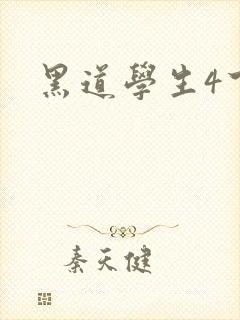 黑道學生4
秦天健